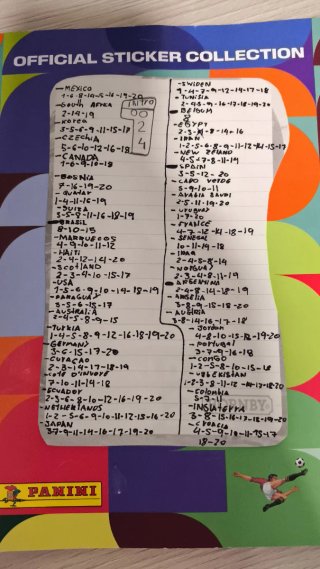 OFFICIAL STICKER COLLECTION
INTRO
00
2
4
-MEXICO
1-6-8-14-15-16-19-20
-South AFRCA
2-14-19
-KOREA
3-5-6-9-11-15-18
-CZECHIA
5-6-10-12-16-18
-CANADA
1-6-9-10-18
-BOSNIA
7-16-19-20
-QUATAR
1-4-11-16-19
-SUIZA
3-5-8-11-16-18-19
-BRASIL
8-10-15
-MARRUECOS
4-9-10-11-12
-HAITI
2-4-12-14-20
-SCOTLAND
2-3-4-10-15-17
-USA
1-5-6-9-10-14-18-19
-PARAGUAY
3-5-6-15-17
-AUSTRALIA
2-4-5-8-9-15
-TURKIA
1-4-5-8-9-12-16-18-19-20
-GERMANY
3-6-15-17-20
-CURAÇAO
2-3-14-17-18-19
-COTE D'IVOIRE
7-10-11-14-18
-ECUADOR
2-3-6-8-10-12-16-20
-NETHERLANDS
1-2-5-6-9-10-11-12-15-16-20
-JAPAN
3-7-9-11-14-16-17-19-20
-SWIDEN
9-4-7-9-12-14-17-18
-TUNISIA
2-4-5-9-16-17-18-20
-BELGIUM
8
-EGYPT
-IRAN
1-2-5-6-8-9-11-12-14-15-17
-NEW ZELAND
4-5-7-8-11-19
-SPAIN
3-5-12-20
-CABO VERDE
5-9-10-11
-ARABIA SAUDI
2-5-11-19-20
-URUGUAY
1-7-20
-FRANCE
4-7-12-14-18-19
-SENEGAL
10-11-14-18
-IRAQ
2-4-5-8-14
-NORGUAY
2-3-4-8-11-19
-ARGENTINA
2-4-8-14-18-19
-ARGELIA
3-8-9-15-18-20
-AUSTRIA
3-8-14-16-17-18
-Jordan
4-8-10-15-17-19-20
-PORTUGAL
3-7-9-16-18
-CONGO
1-2-5-8-10-15-18
-UZBEKISTAN
1-2-3-8-11-12-14-17-18-20
-Colombia
5-7-11
-INGLATERRA
3-8-9-15-16-17-18-19-20
-CROACIA
4-5-9-10-11-15-17
18-20
PANINI